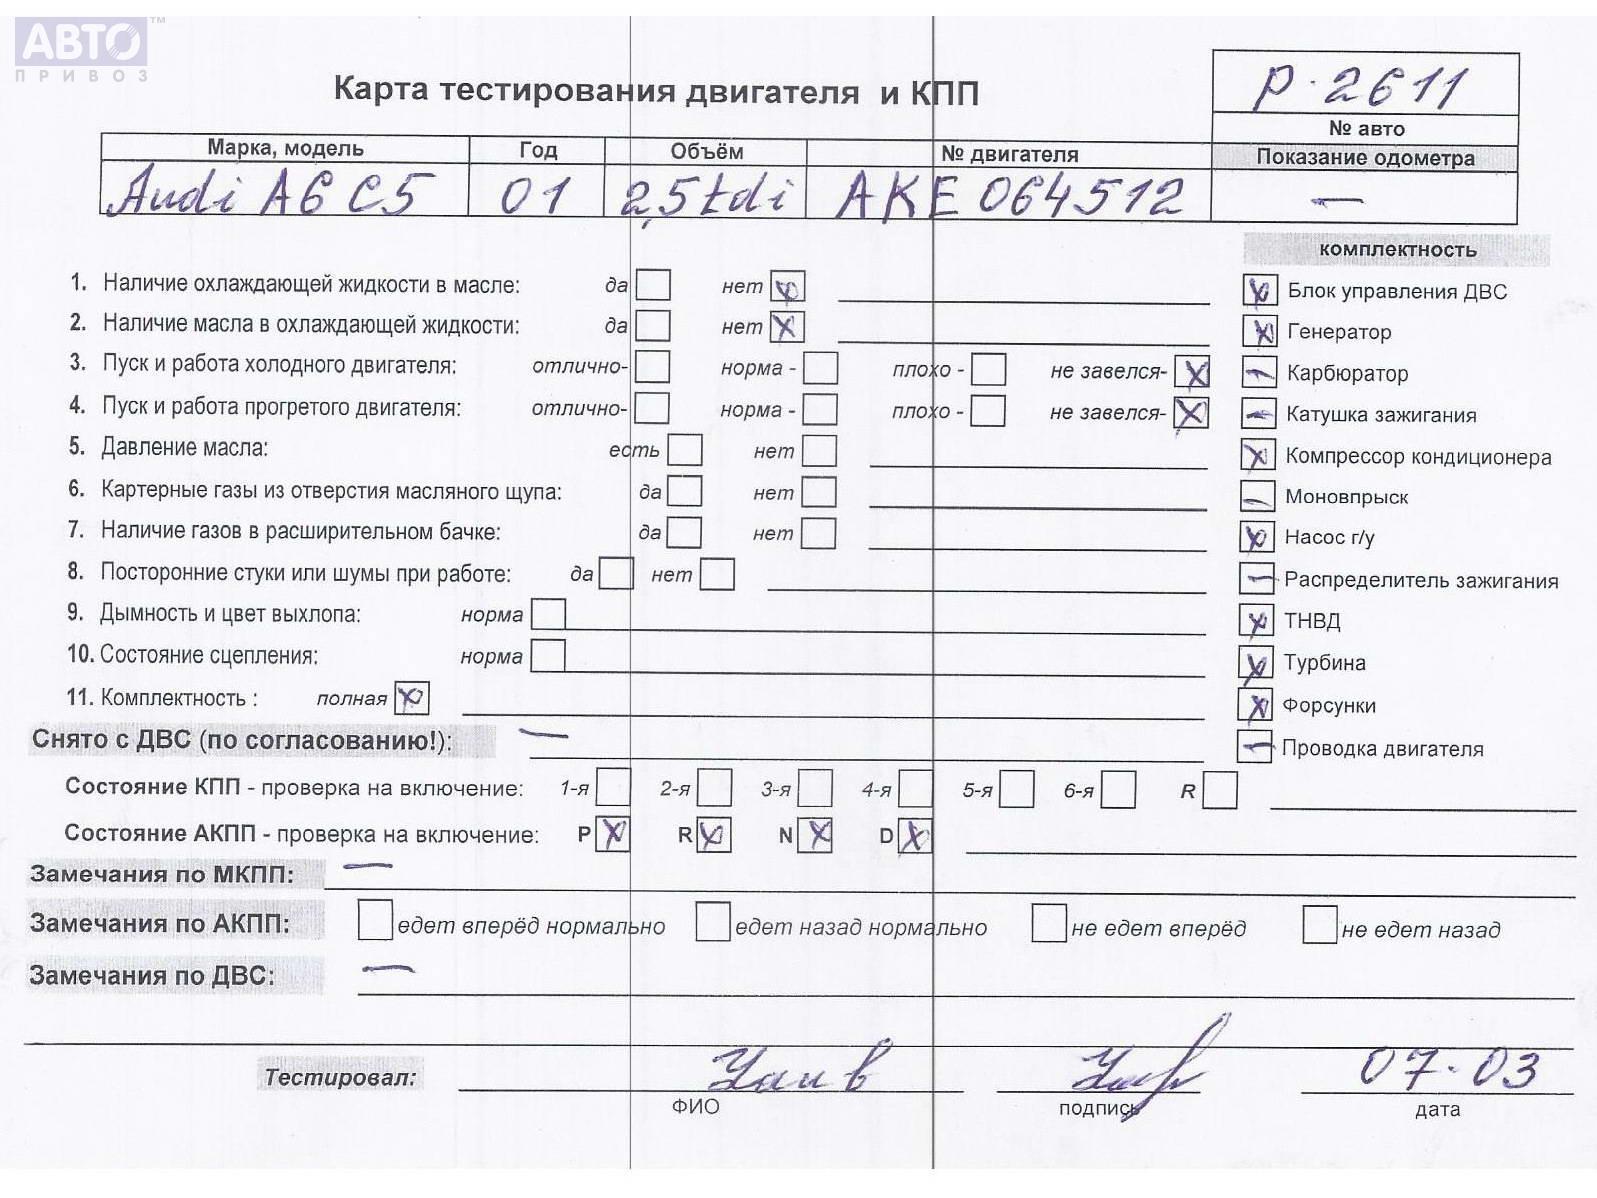 АВТО™
ПРИВОЗ
Карта тестирования двигателя и КПП
р-2611
№ авто
Марка, модель Год Объём № двигателя Показание одометра
Audi A6 C5 01 2,5 tdi AKE 064512 —
комплектность
1. Наличие охлаждающей жидкости в масле: да нет
2. Наличие масла в охлаждающей жидкости: да нет
3. Пуск и работа холодного двигателя: отлично- норма - плохо - не завелся-
4. Пуск и работа прогретого двигателя: отлично- норма - плохо - не завелся-
5. Давление масла: есть нет
6. Картерные газы из отверстия масляного щупа: да нет
7. Наличие газов в расширительном бачке: да нет
8. Посторонние стуки или шумы при работе: да нет
9. Дымность и цвет выхлопа: норма
10. Состояние сцепления: норма
11. Комплектность : полная
Блок управления ДВС
Генератор
Карбюратор
Катушка зажигания
Компрессор кондиционера
Моновпрыск
Насос г/у
Распределитель зажигания
ТНВД
Турбина
Форсунки
Проводка двигателя
Снято с ДВС (по согласованию!): —
Состояние КПП - проверка на включение: 1-я 2-я 3-я 4-я 5-я 6-я R
Состояние АКПП - проверка на включение: P R N D
Замечания по МКПП: —
Замечания по АКПП: едет вперёд нормально едет назад нормально не едет вперёд не едет назад
Замечания по ДВС: —
Тестировал: 07-03
ФИО подпись дата